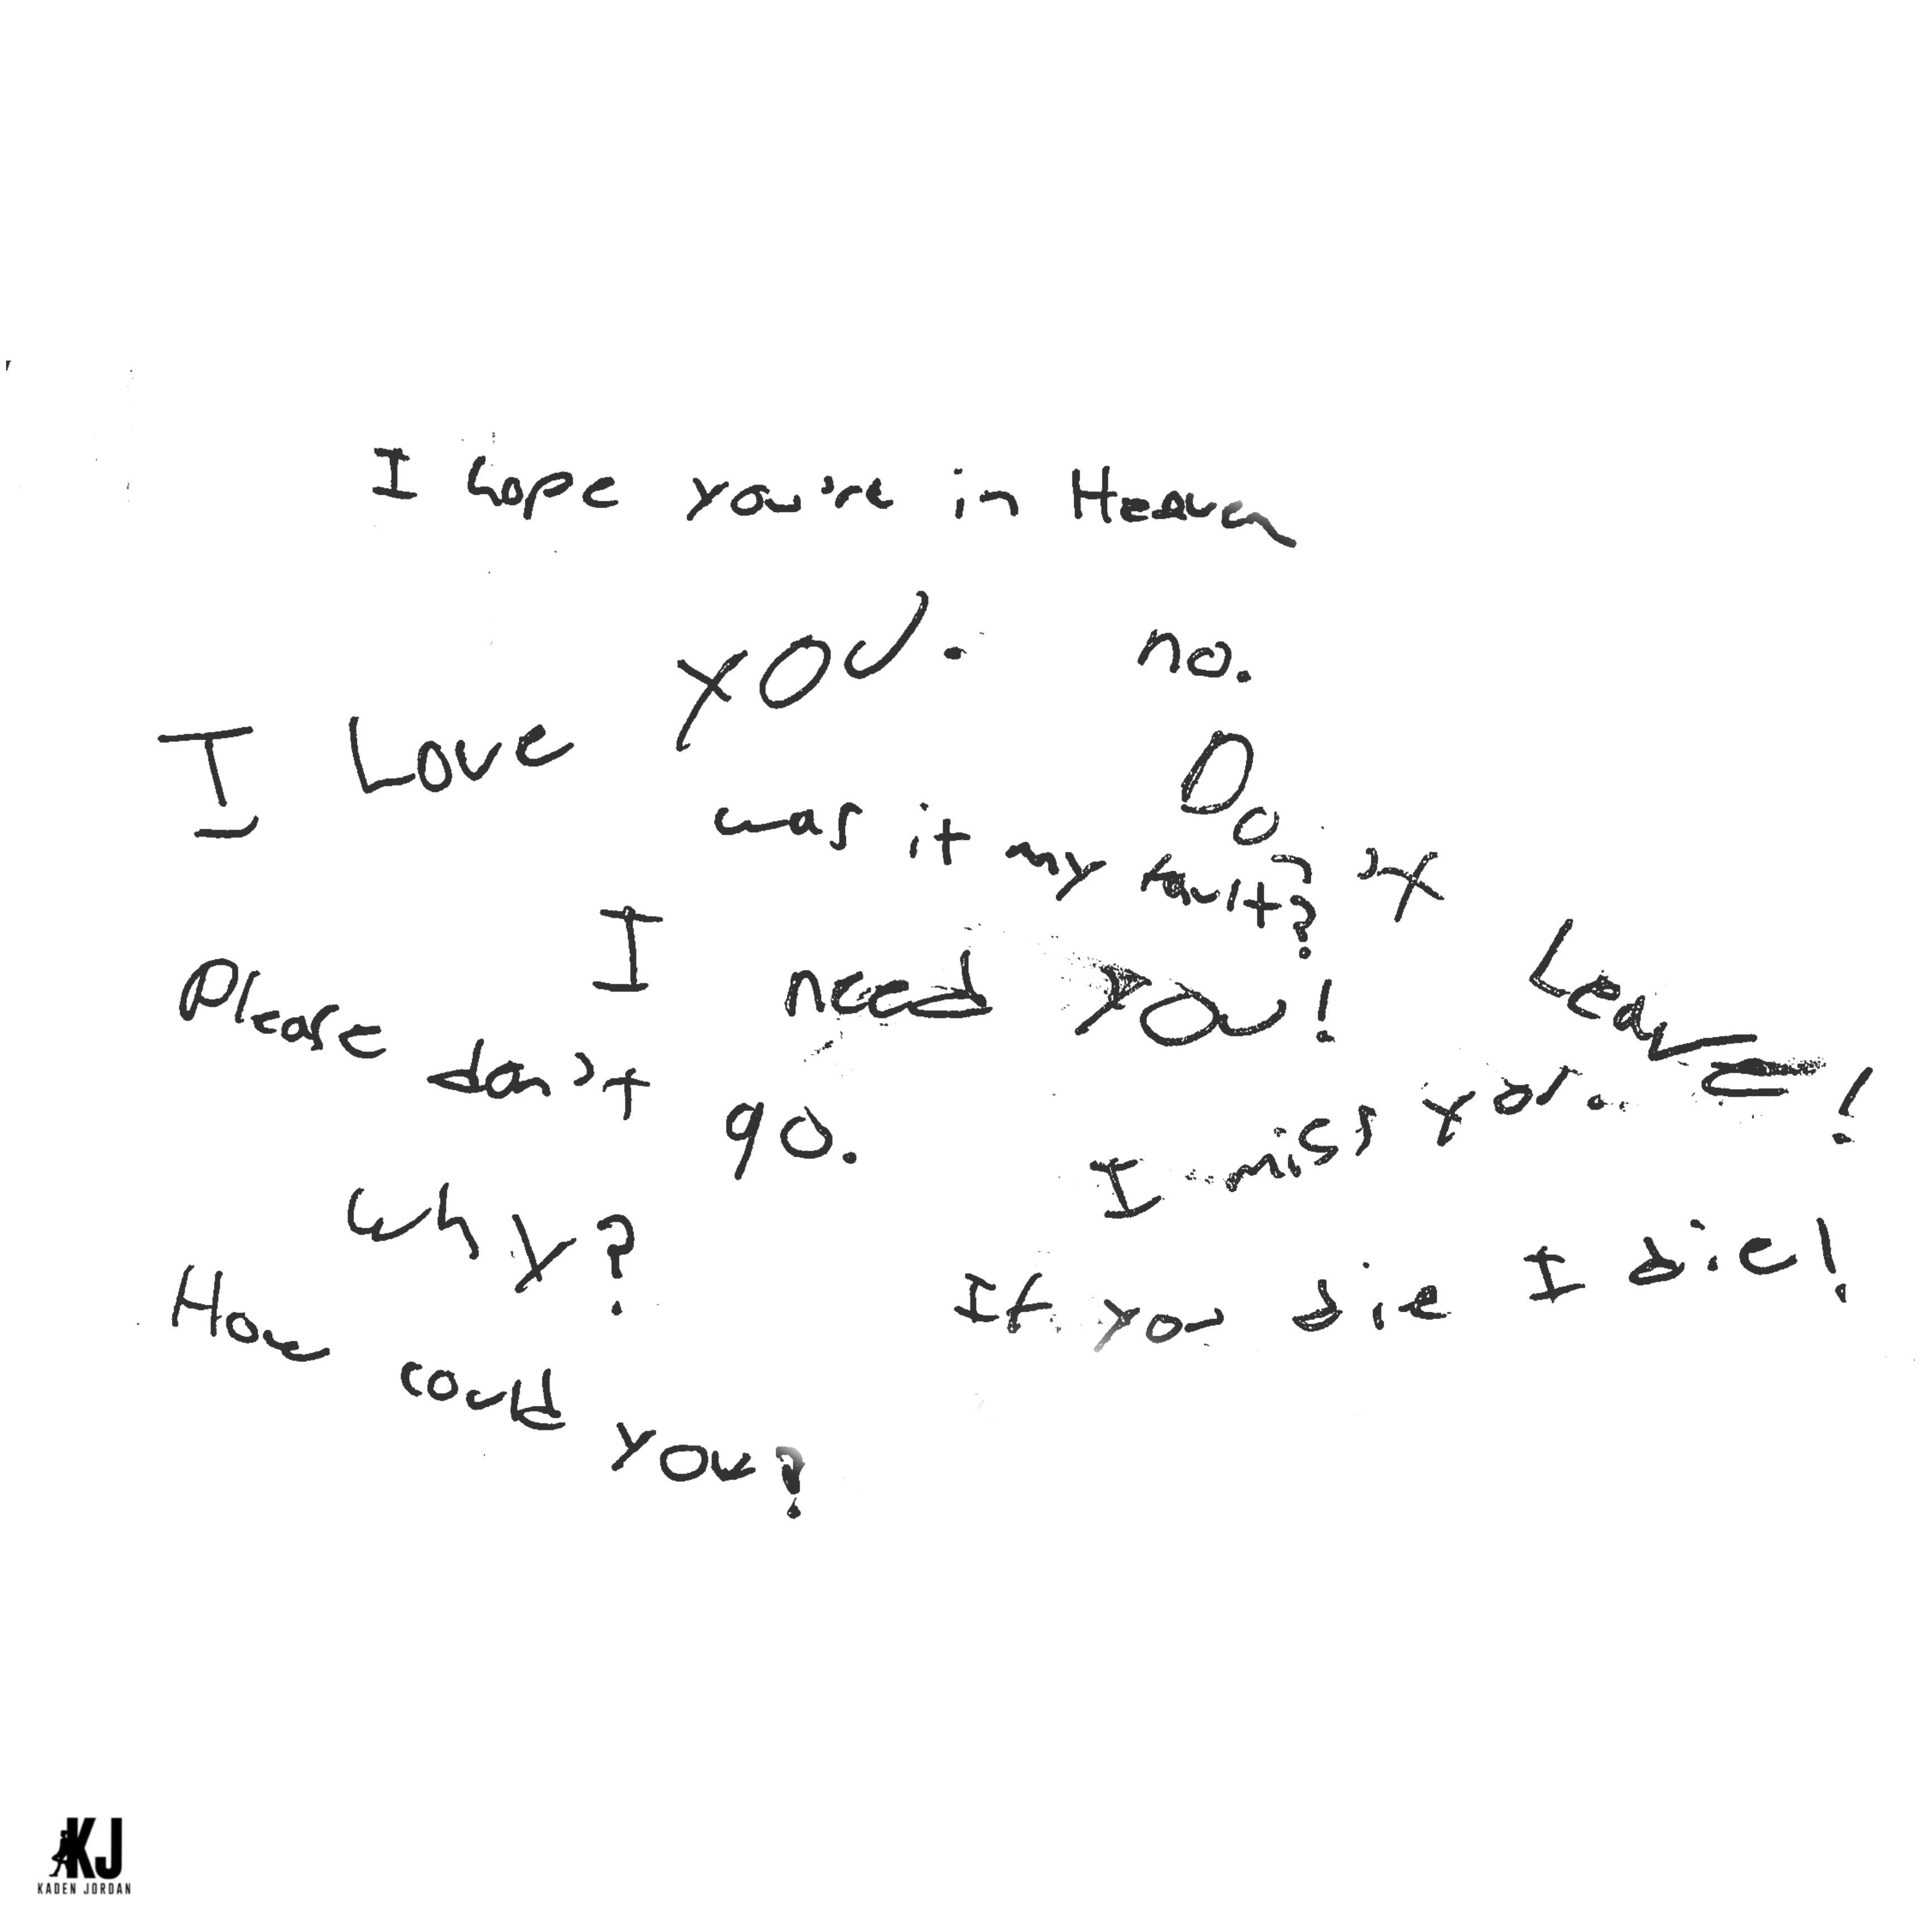 I hope you're in Heaven
I Love YOU.
no.
Don't Leave!
was it my fault?
I need YOU!
Please don't go.
I miss you.
Why?
If you die I die!
How could you?
KJ
KADEN JORDAN